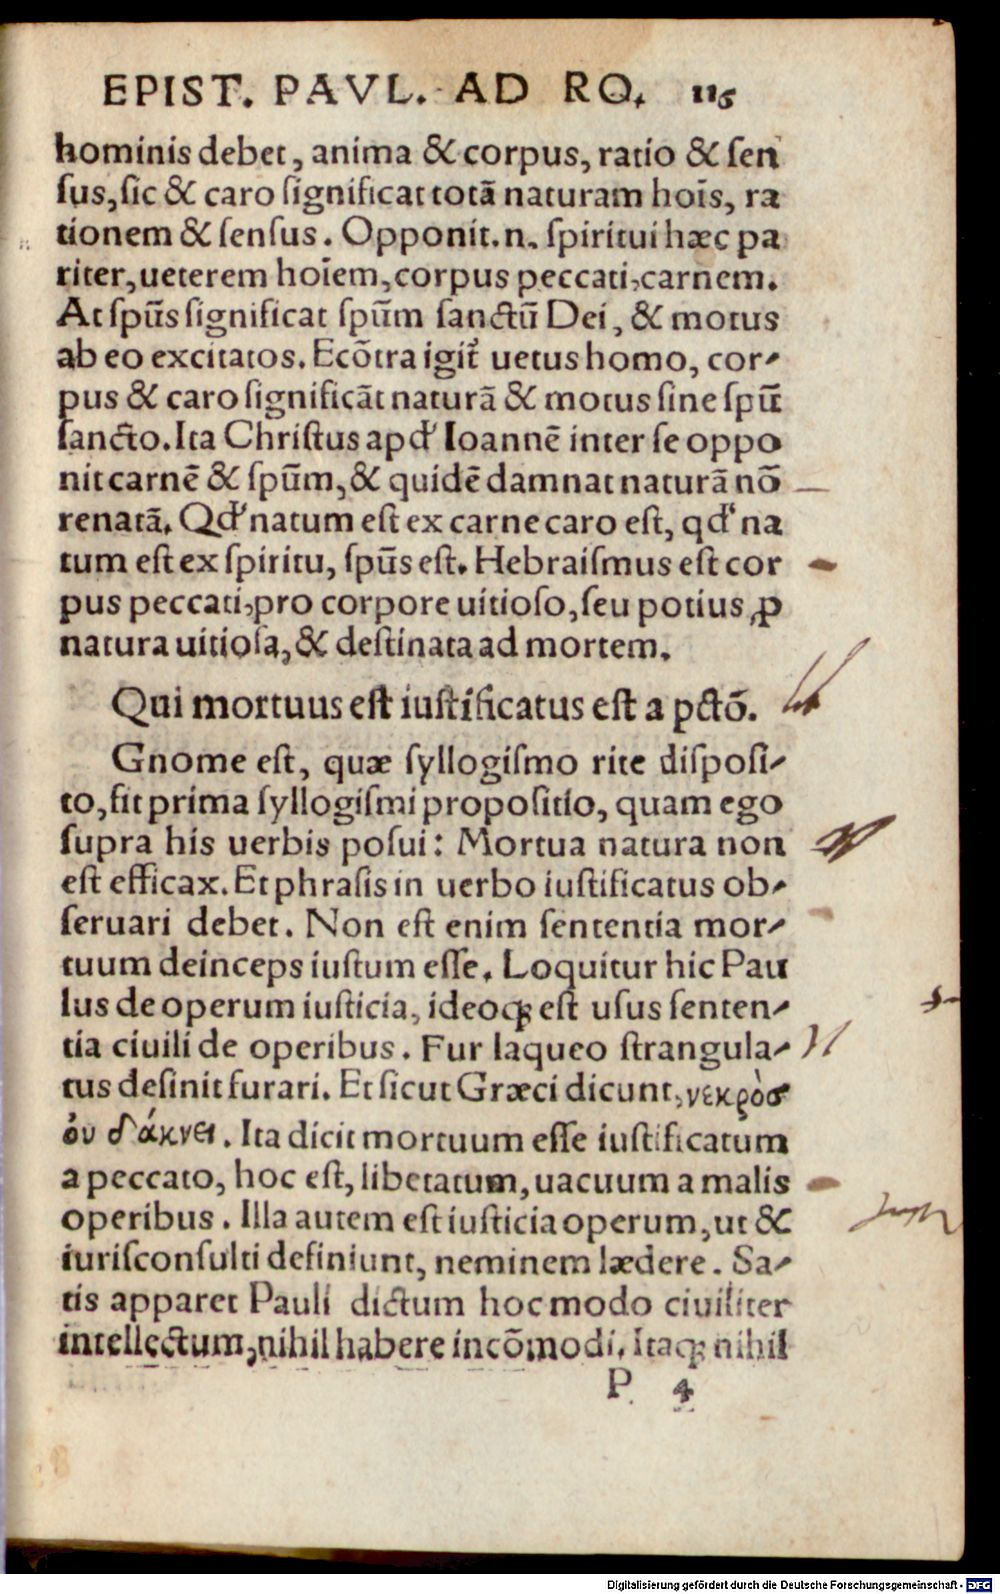 EPIST. PAVL. AD RO. 116
hominis debet, anima & corpus, ratio & ſen
ſus, ſic & caro ſignificat totã naturam hoīs, ra
tionem & ſenſus. Opponit.n. ſpiritui hæc pa
riter, ueterem hoīem, corpus peccati, carnem.
At ſpūs ſignificat ſpūm ſanctū Dei, & motus
ab eo excitatos. Ecõtra igit᷑ uetus homo, cor-
pus & caro ſignificãt naturã & motus ſine ſpū
ſancto. Ita Chriſtus apđ Ioannẽ inter ſe oppo
nit carnẽ & ſpūm, & quidẽ damnat naturã nõ
renatã. Qđ natum eſt ex carne caro eſt, qđ na
tum eſt ex ſpiritu, ſpūs eſt. Hebraiſmus eſt cor
pus peccati, pro corpore uitioſo, ſeu potius ꝓ
natura uitioſa, & deſtinata ad mortem.
Qui mortuus eſt iuſtificatus eſt a pctõ.
Gnome eſt, quæ ſyllogiſmo rite diſpoſi-
to, fit prima ſyllogiſmi propoſitio, quam ego
ſupra his uerbis poſui: Mortua natura non
eſt efficax. Et phraſis in uerbo iuſtificatus ob-
ſeruari debet. Non eſt enim ſententia mor-
tuum deinceps iuſtum eſſe. Loquitur hic Pau
lus de operum iuſticia, ideoq; eſt uſus ſenten-
tia ciuili de operibus. Fur laqueo ſtrangula-
tus deſinit furari. Et ſicut Græci dicunt, νεκρὸσ
ὀυ δάκνει. Ita dicit mortuum eſſe iuſtificatum
a peccato, hoc eſt, liberatum, uacuum a malis
operibus. Illa autem eſt iuſticia operum, ut &
iuriſconſulti definiunt, neminem lædere. Sa-
tis apparet Pauli dictum hoc modo ciuiliter
intellectum, nihil habere incõmodi. Itaq; nihil
P 4
Digitalisierung gefördert durch die Deutsche Forschungsgemeinschaft - DFG